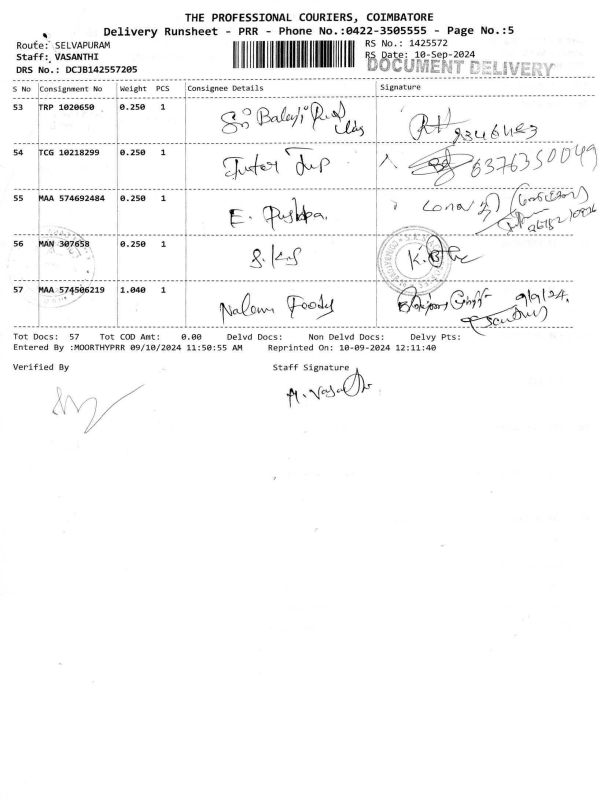 THE PROFESSIONAL COURIERS, COIMBATORE
Delivery Runsheet - PRR - Phone No.:0422-3505555 - Page No.:5
Route: SELVAPURAM
RS No.: 1425572
Staff: VASANTHI
RS Date: 10-Sep-2024
DRS No.: DCJB142557205
DOCUMENT DELIVERY
S No Consignment No Weight PCS Consignee Details Signature
53 TRP 1020650 0.250 1 Sri Balaji
54 TCG 10218299 0.250 1 Tutor 6376350049
55 MAA 574692484 0.250 1 E. Pushpa
56 MAN 307658 0.250 1 S.K.S
57 MAA 574506219 1.040 1 Nalam Foody 9/9/24.
Tot Docs: 57 Tot COD Amt: 0.00 Delvd Docs: Non Delvd Docs: Delvy Pts:
Entered By :MOORTHYPRR 09/10/2024 11:50:55 AM Reprinted On: 10-09-2024 12:11:40
Verified By Staff Signature